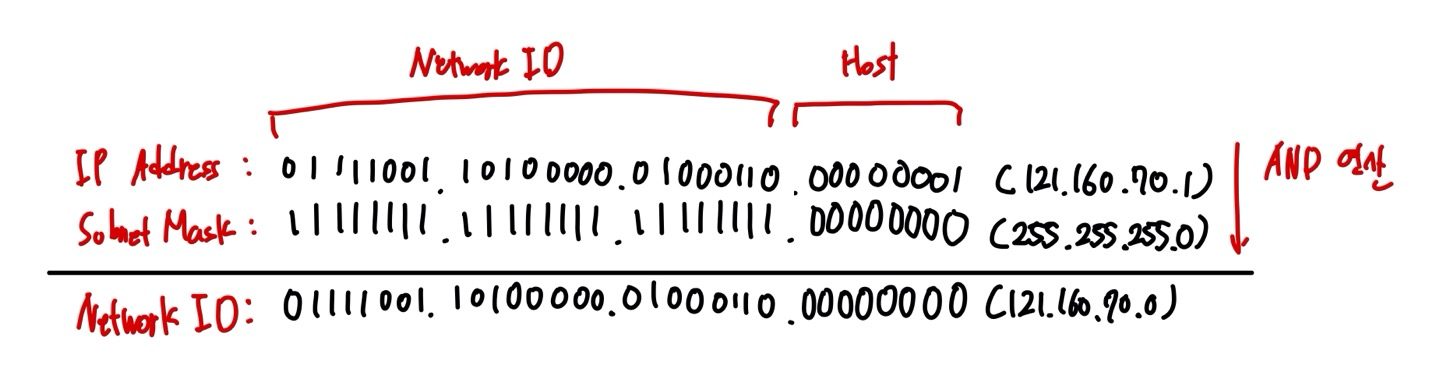 Network ID
Host
IP Address : 01111001.10100000.01000110.00000001 (121.160.70.1)
AND 연산
Subnet Mask : 11111111.11111111.11111111.00000000 (255.255.255.0)
Network ID: 01111001.10100000.01000110.00000000 (121.160.70.0)